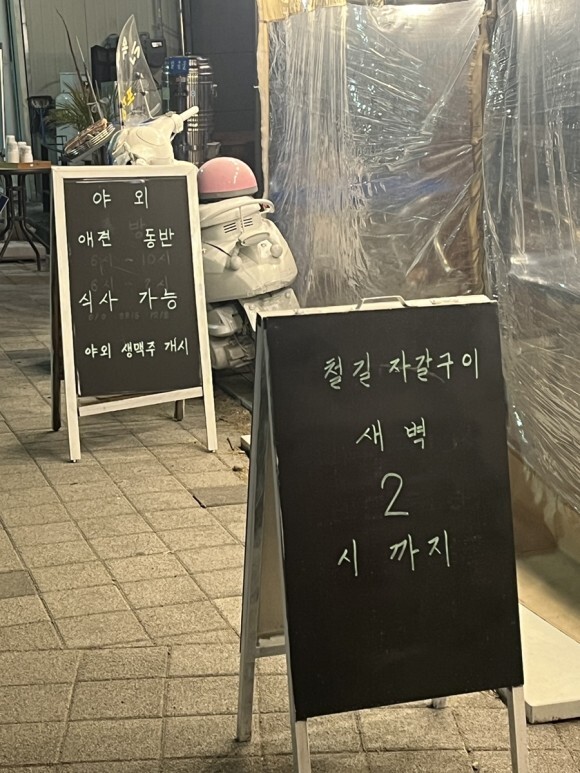 야 외
애견 동반
식사 가능
야외 생맥주 개시
철길 자갈구이
새 벽
2
시 까지